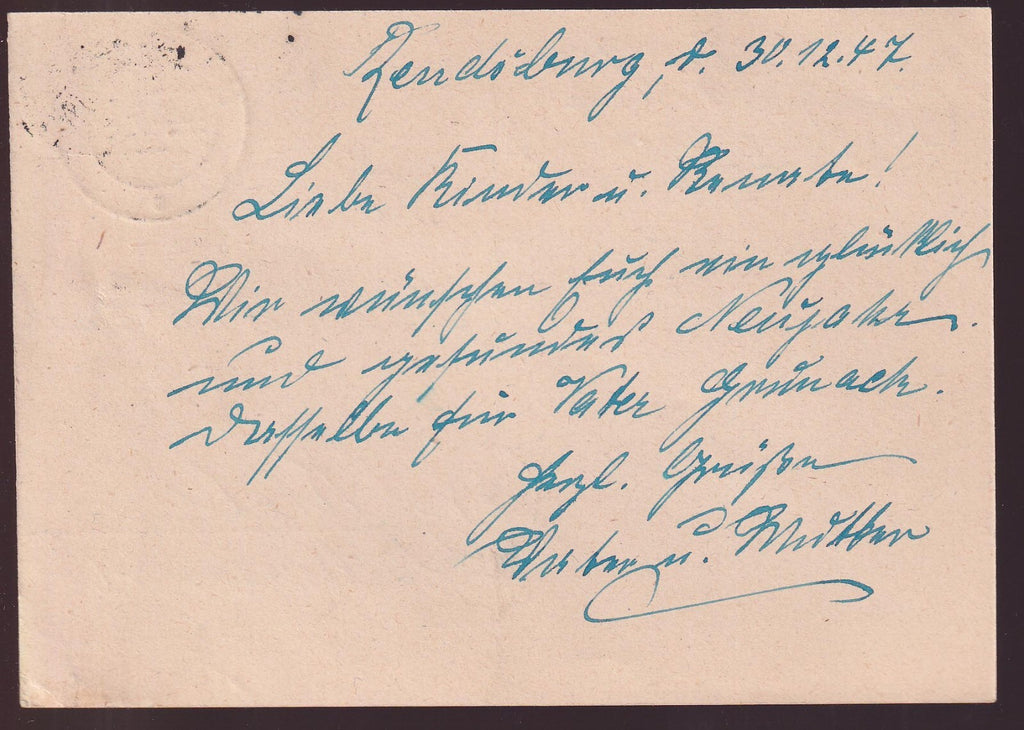 Rendsburg, d. 30.12.47.
Liebe Kinder u. Renate!
Wir wünschen Euch ein glücklich
und gesundes Neujahr.
Dasselbe für Vater
Herzl. Grüße
Vater u. Mutter